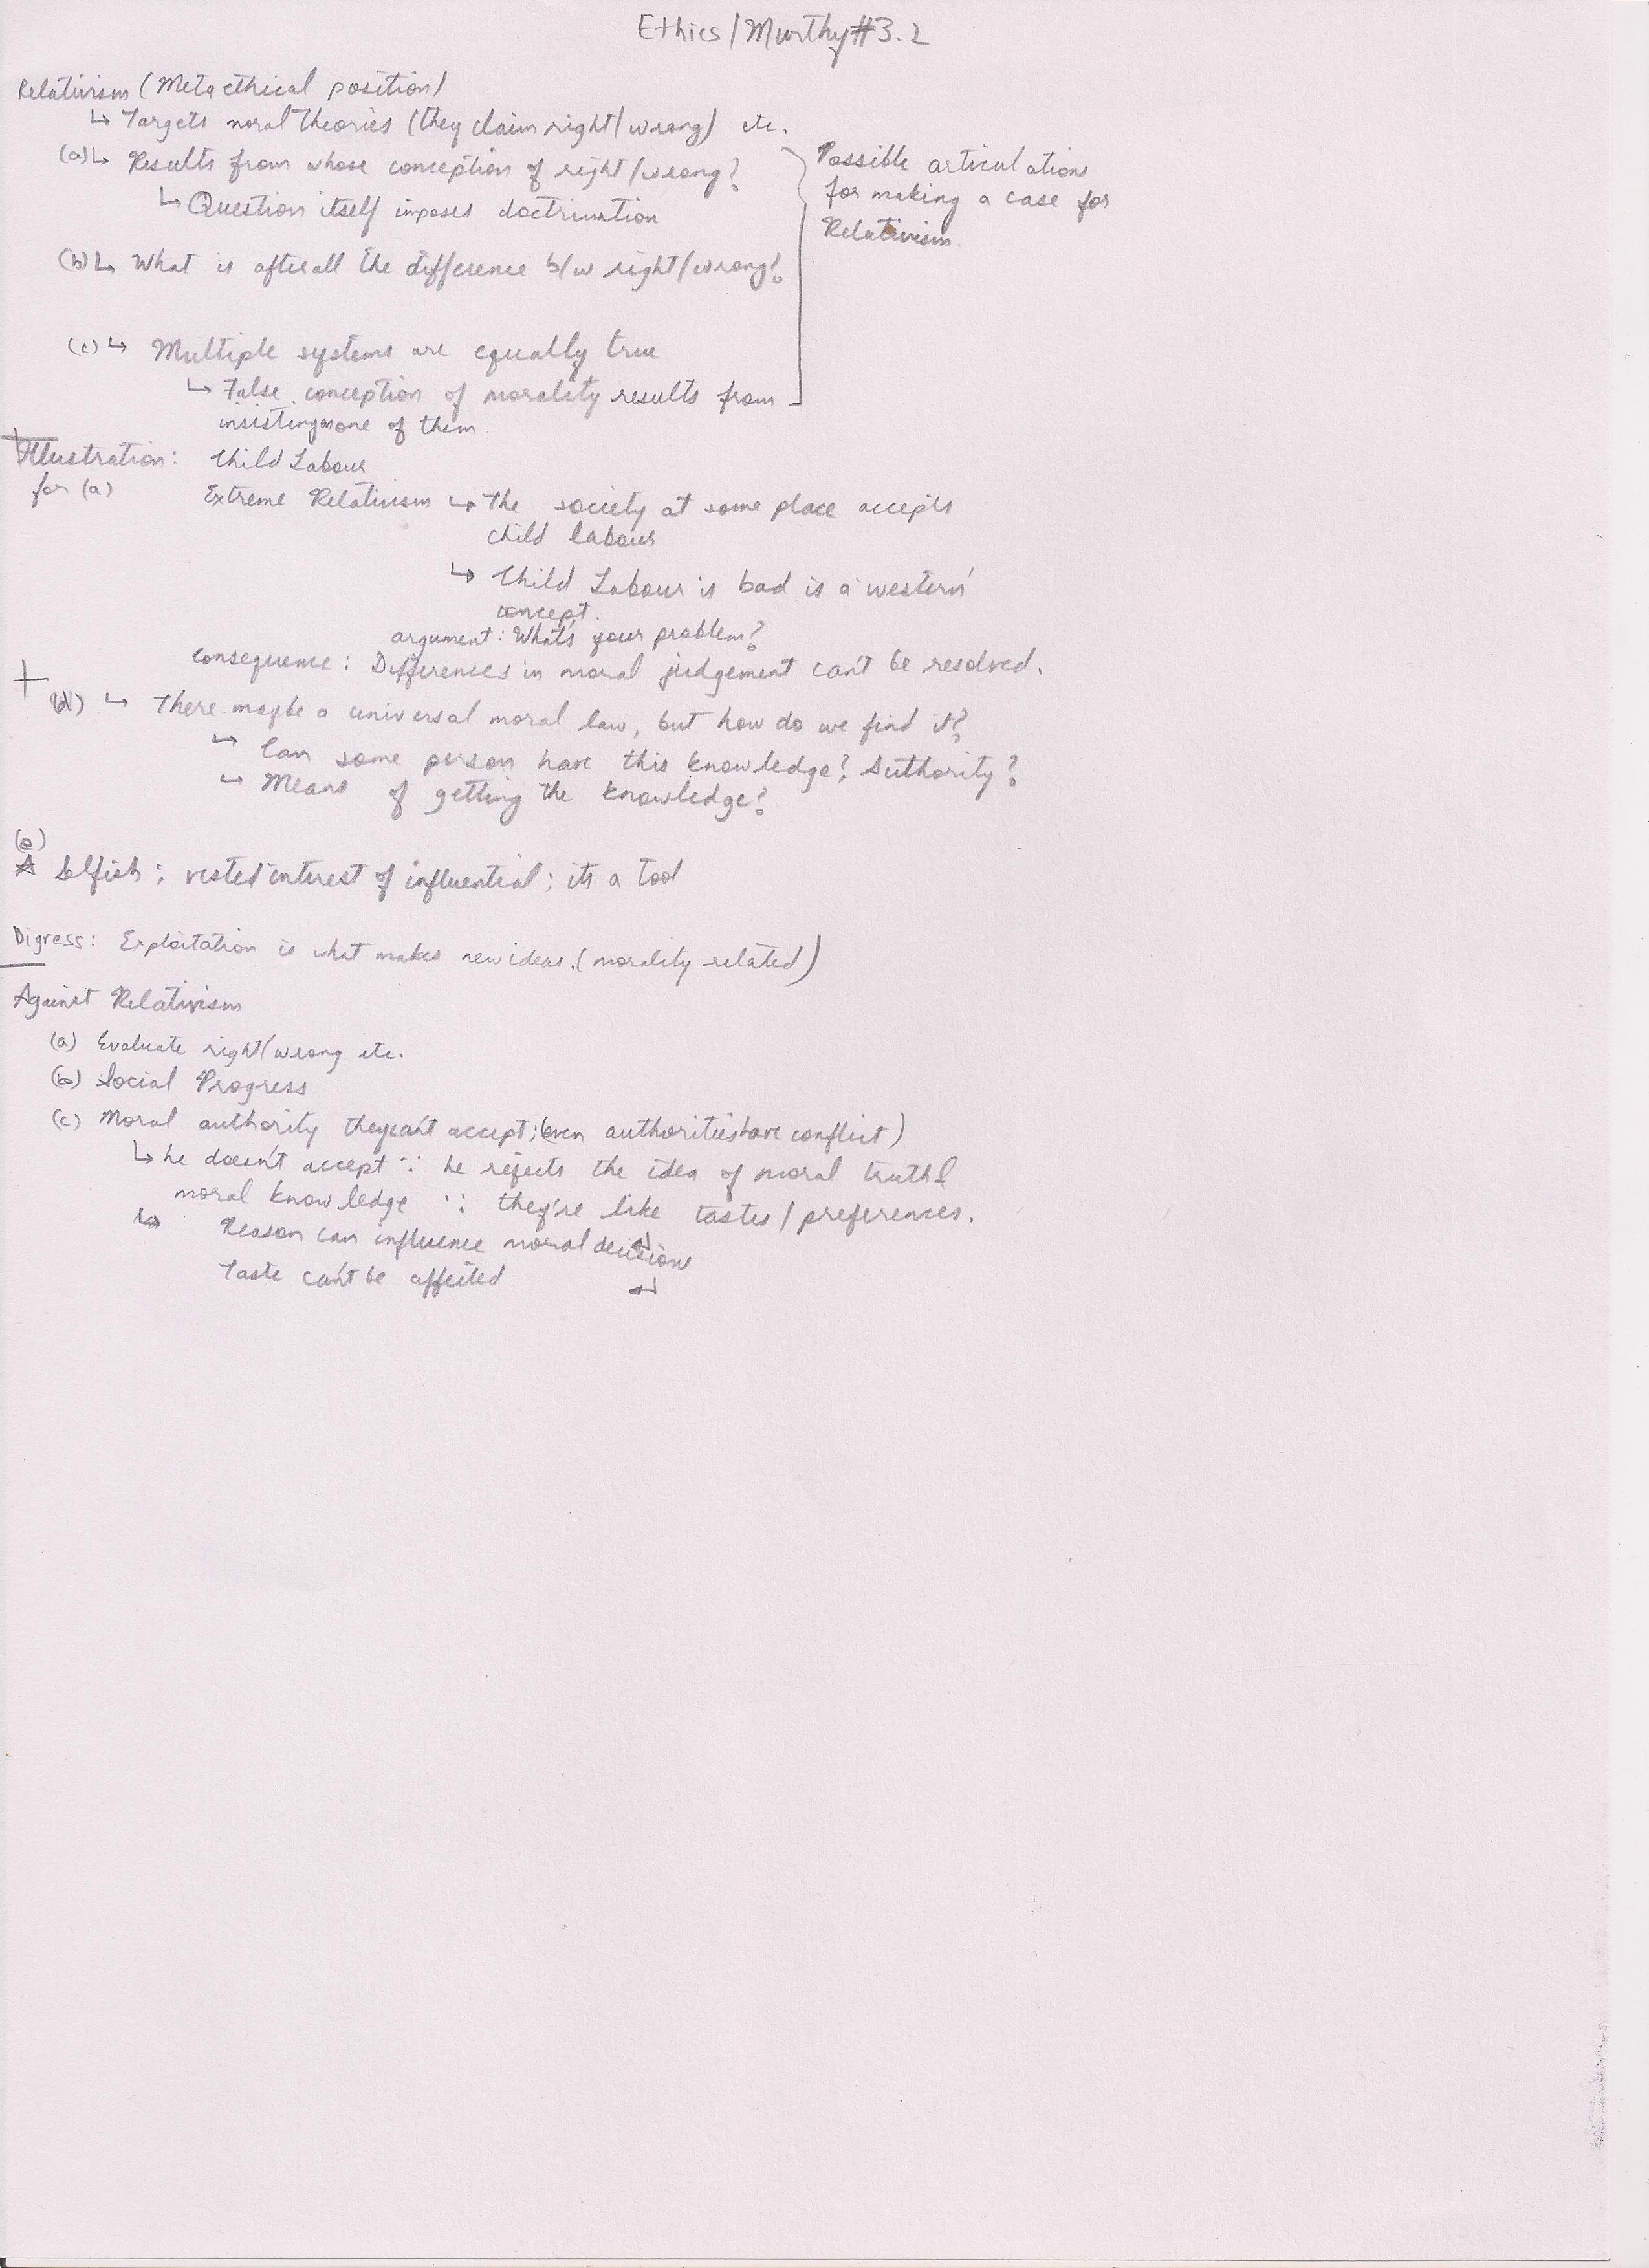 Ethics/Murthy#3.2
Relativism (Meta ethical position)
↳ Targets moral theories (they claim right/wrong) etc.
(a)↳ Results from whose conception of right/wrong?
↳ Question itself imposes doctrination
Possible articulations
for making a case for
Relativism
(b)↳ What is after all the difference b/w right/wrong?
(c)↳ Multiple systems are equally true
↳ False conception of morality results from
insisting on one of them
Illustration: Child Labour
for (a)
Extreme Relativism ↳ The society at some place accepts
child labour
↳ Child Labour is bad is a 'western'
concept.
argument: What's your problem?
consequence: Differences in moral judgement can't be resolved.
(d) ↳ There maybe a universal moral law, but how do we find it?
↳ Can some person have this knowledge? Authority?
↳ Means of getting the knowledge?
(e)
☆ Selfish; vested interest of influential; its a tool
Digress: Exploitation is what makes new ideas. (morality related)
Against Relativism
(a) Evaluate right/wrong etc.
(b) Social Progress
(c) Moral authority they can't accept; (even authorities have conflict)
↳ he doesn't accept ∵ he rejects the idea of moral truth &
moral knowledge ∵ they're like tastes/preferences.
↳ Reason can influence moral decision
Taste can't be affected